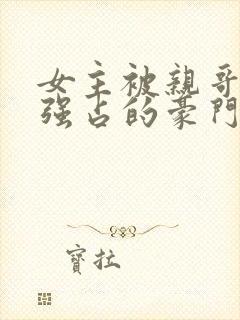 女主被親哥
強占的豪門
寶拉